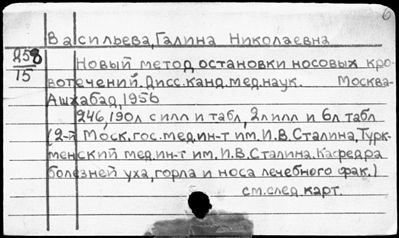 Васильева, Галина Николаевна
258
15
Новый метод остановки носовых кро-
вотечений. Дисс. канд. мед. наук. Москва-
Ашхабад, 1956
246, 190л с илл и табл, 2л илл и 6л табл
(2-й Моск. гос. мед. ин-т им. И.В. Сталина, Турк-
менский мед. ин-т им. И.В. Сталина. Кафедра
болезней уха, горла и носа лечебного фак.)
см. след. карт.